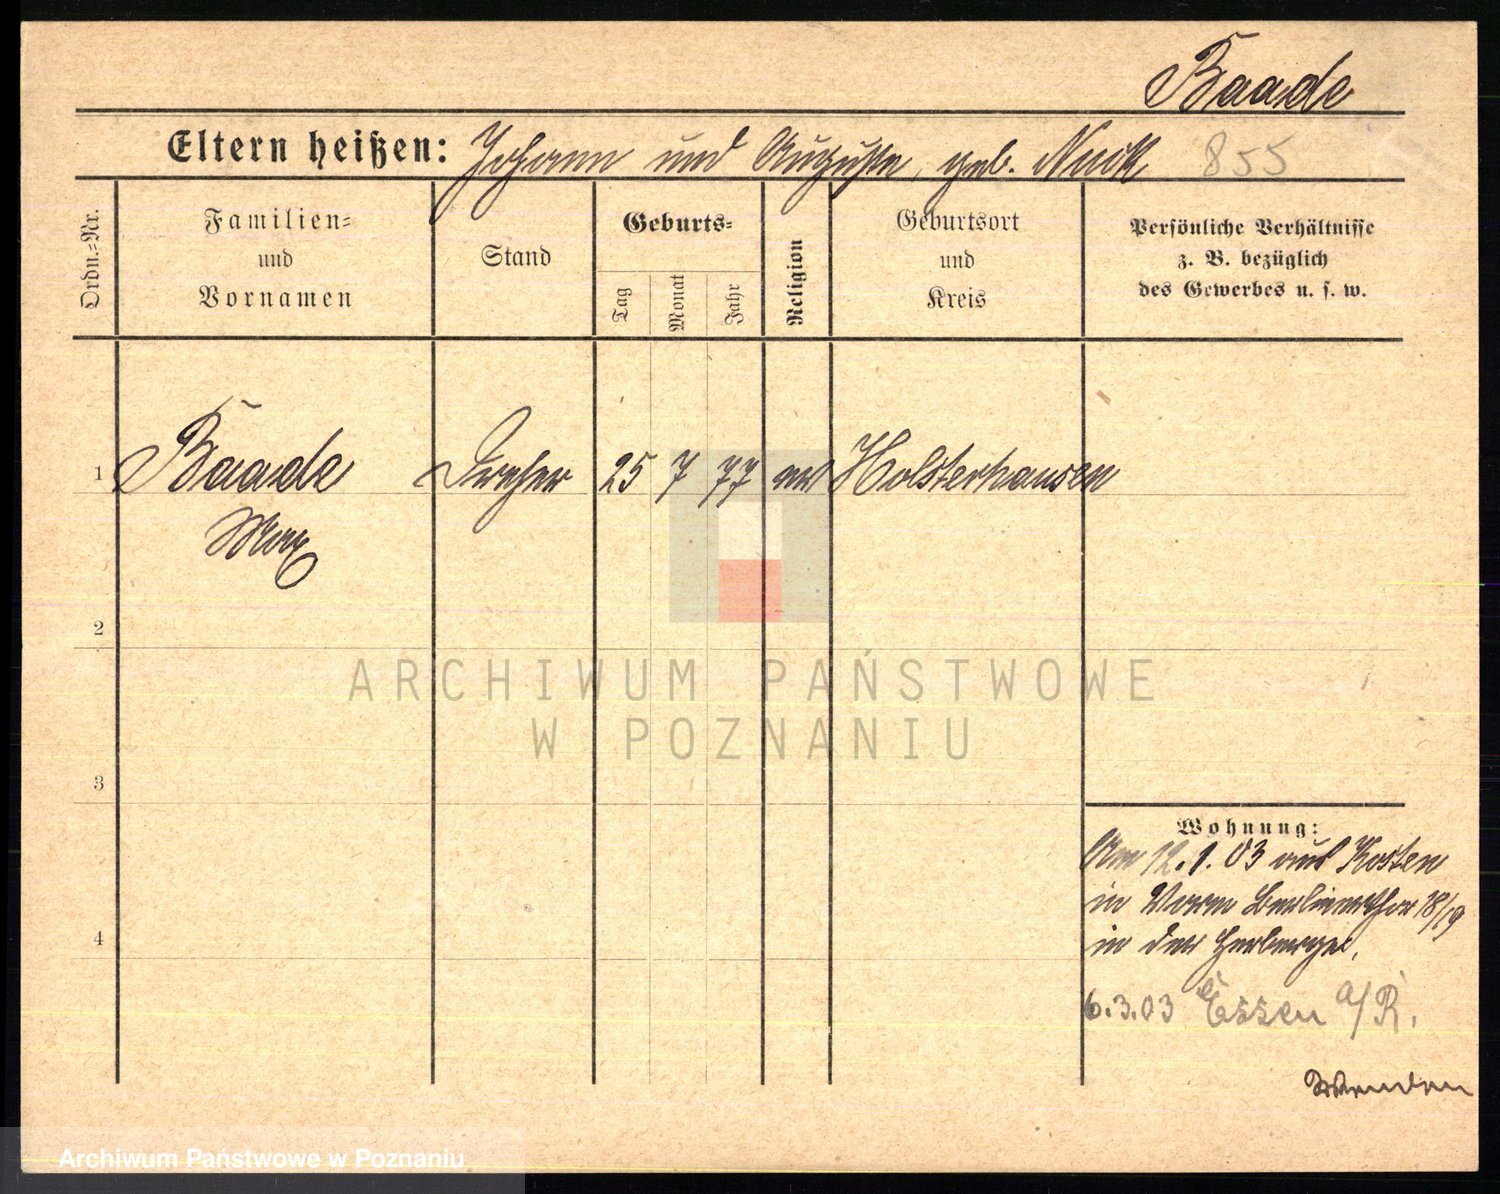 Baade
Eltern heißen: Johann und Auguste, geb. 855
Ordn.=Nr.
Familien=
und
Vornamen
Stand
Geburts=
Tag
Monat
Jahr
Religion
Geburtsort
und
Kreis
Persönliche Verhältnisse
z. B. bezüglich
des Gewerbes u. s. w.
1 Baade Dreher 25 7 77 ev Holsterhausen
Max
2
3
4
ARCHIWUM PAŃSTWOWE
W POZNANIU
Wohnung:
Am 12.1.03 aus Kosten
in Berlinerthor 18/19
in der Herberge.
6.3.03 Essen a/R.
Wenden
Archiwum Państwowe w Poznaniu